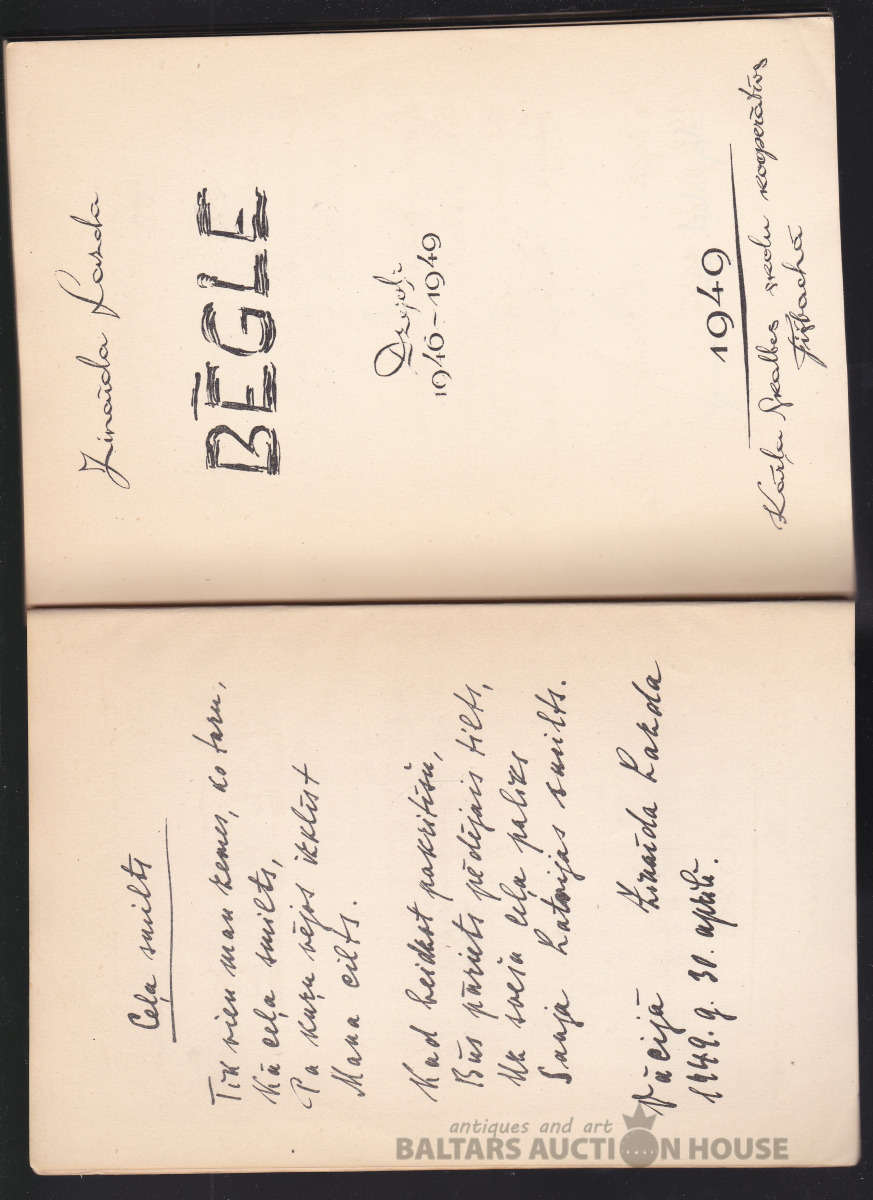 Ceļa smilts
Tik vien man zemes, ko
Kā ceļa smilts,
Pa kuŗu vējos izklīst
Mana cilts.
Kad beidzot pakritīšu,
Būs pāriets pēdējais tilts,
Uz svešu ceļa paliks
Sauja Latvijas smilts.
Vācijā Zinaīda Lazda
1949. g. 30. aprīlī.
Zinaīda Lazda
BĒGLE
Dzejoļi
1946–1949
1949
Kārļa Skalbes skolu kooperātīvs
Fišbachā
antiques and art
BALTARS AUCTION HOUSE